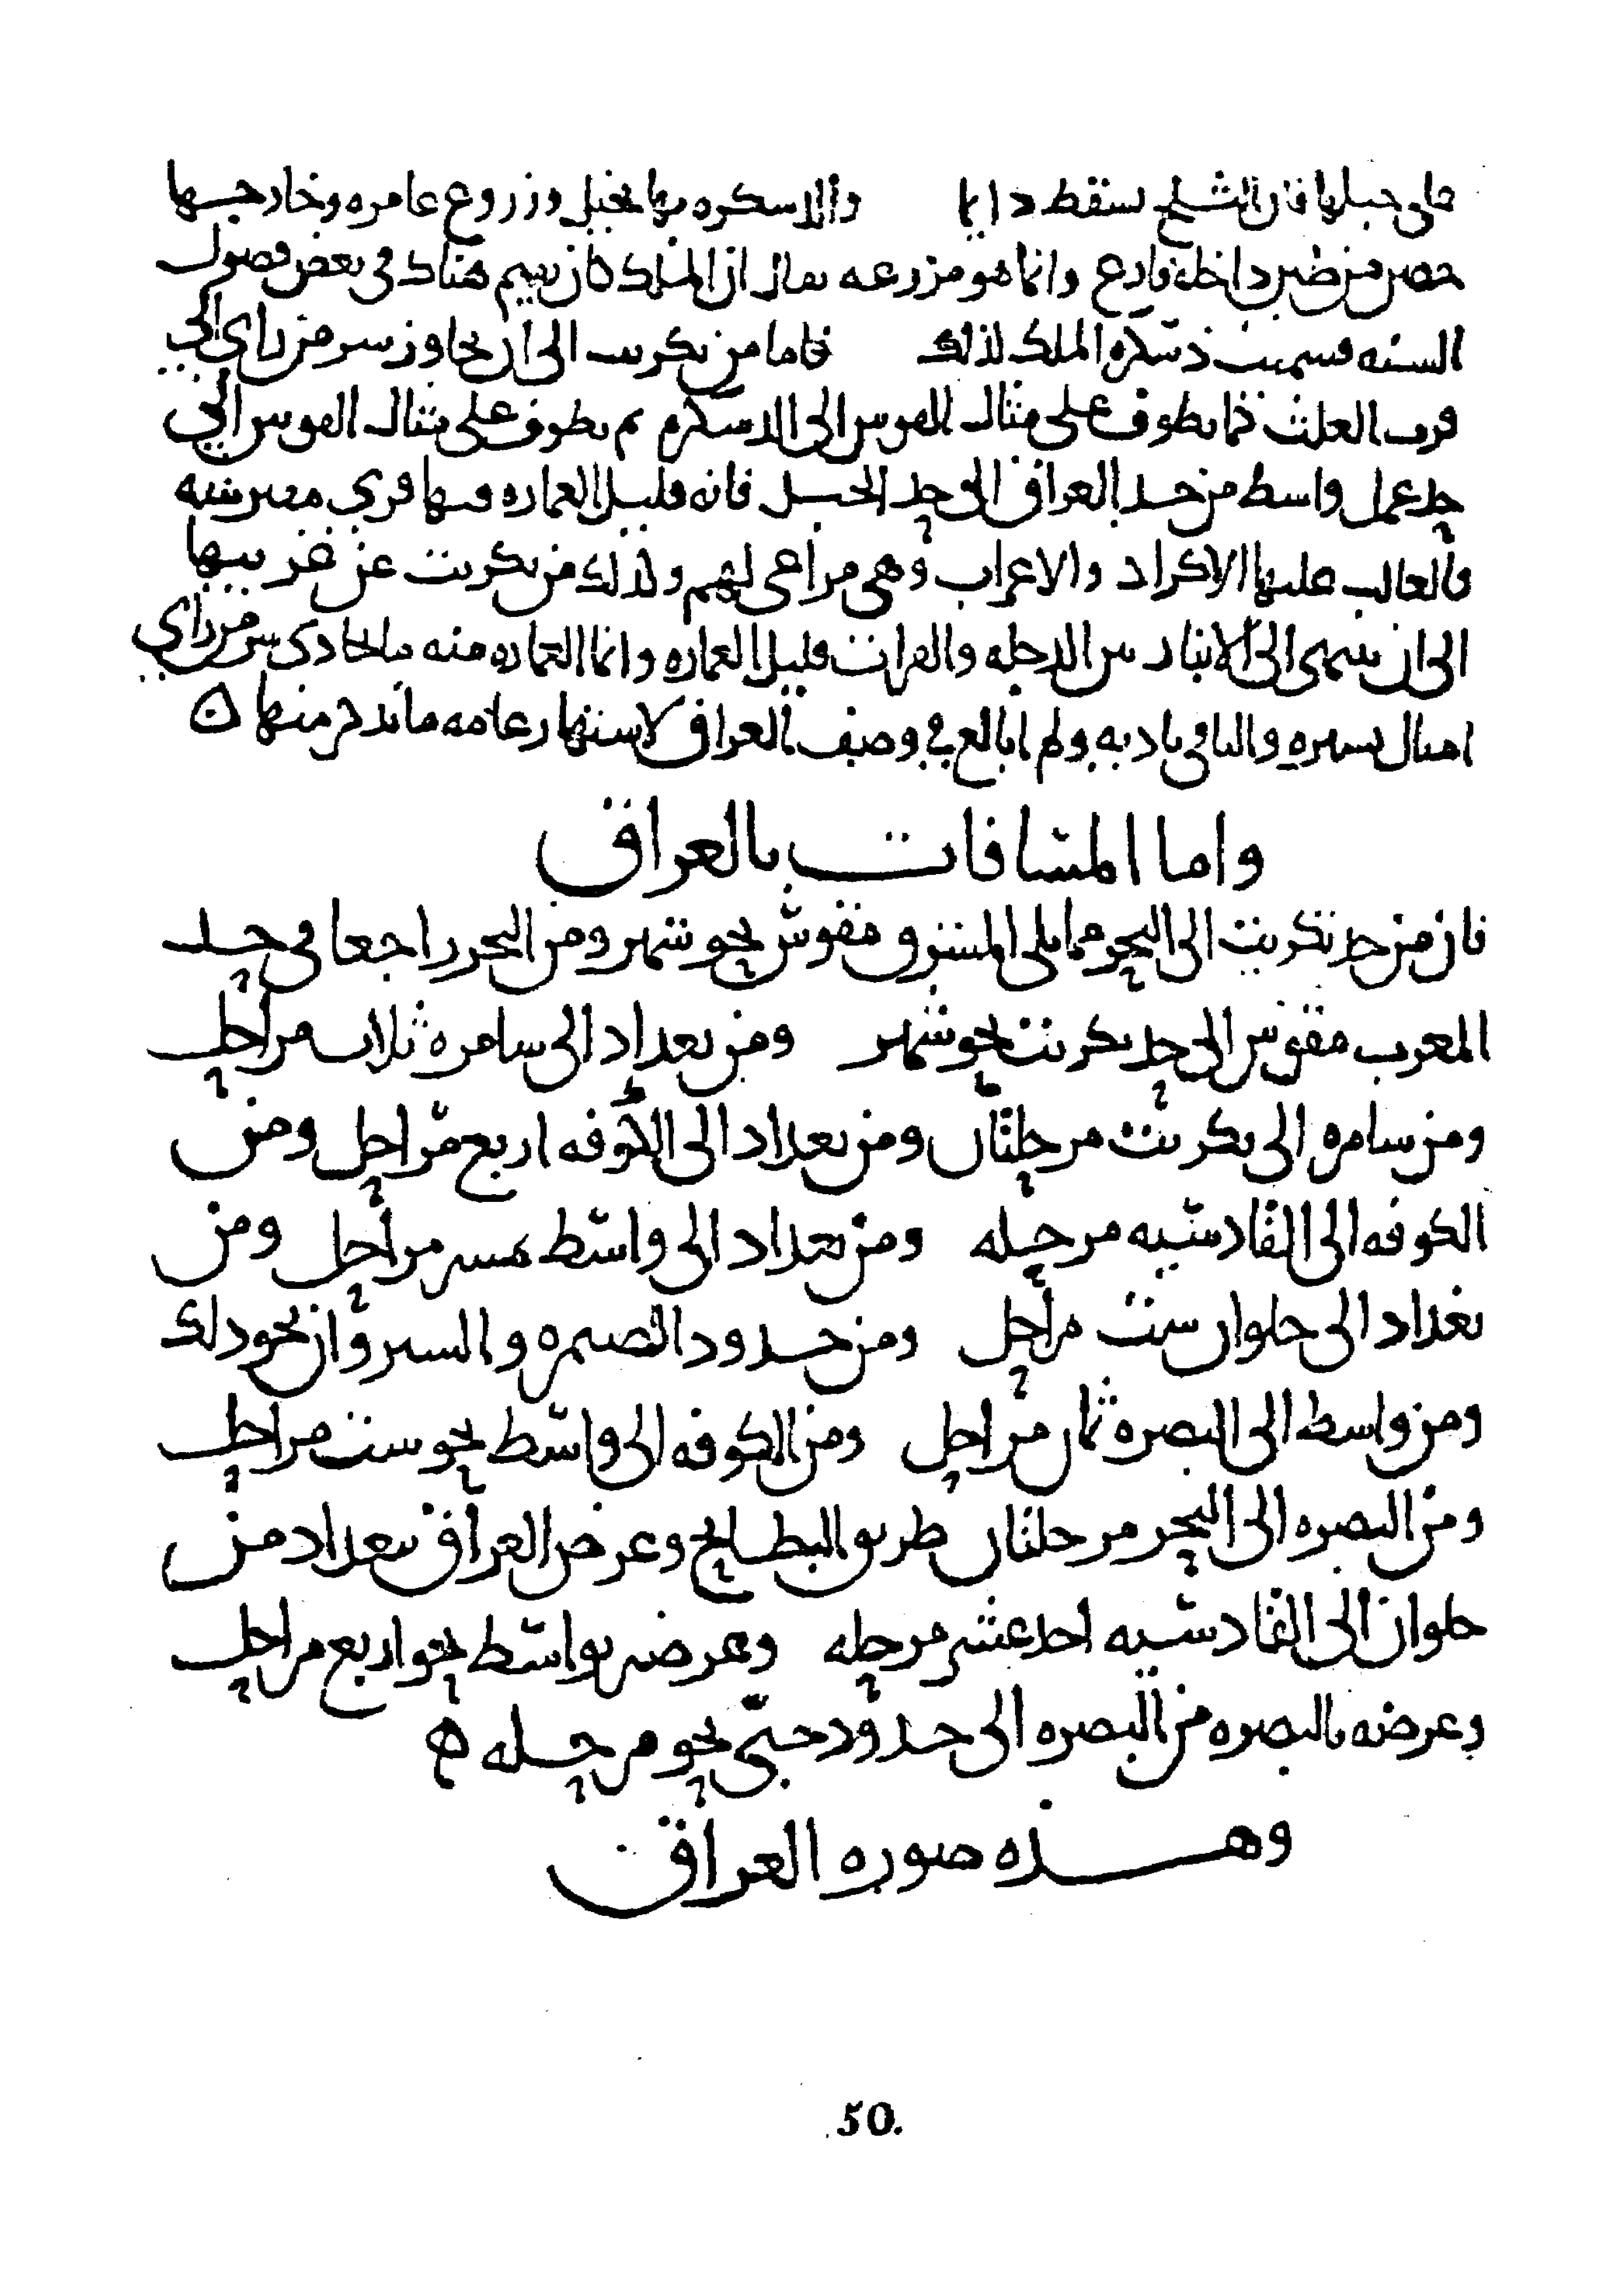 على جبلها فان الثلج يسقط دايما والدسكره بها نخيل وزروع عامره وخارجها
حصن من طين داخله فارغ وانما هو مزرعه يقال ان الملك كان يقيم هناك في بعض فصول
السنه فسميت دسكره الملك لذلك فاما من تكريت الى ان تجاوز سر من راى الى
قرب العلث فما يطوف على مثال القوس الى الدسكره ثم يطوف على مثال القوس الى
حد عمل واسط من حد العراق الى حد الجبل فانه قليل العماره وفيها قري مفترشه
والغالب عليها الاكراد والاعراب وهي مراعي لهم ولذلك من تكريت عن غربيها
الى ان ينتهى الى الانبار بين الدجله والفرات قليل العماره وانما العماره منه ما يحاذى سر من راى
اميال يسيره والباقي باديه ولم ابالغ في وصف العراق لاشتهار عامه ما يذكر منها ن
واما المسافات بالعراق
فان من حد تكريت الى البحر مما يلى المشرق مقوس نحو شهر ومن البحر راجعا في حد
المغرب مقوس الى حد تكريت نحو شهر ومن بغداد الى سامره ثلاث مراحل
ومن سامره الى تكريت مرحلتان ومن بغداد الى الكوفه اربع مراحل ومن
الكوفه الى القادسيه مرحله ومن بغداد الى واسط مراحل ومن
بغداد الى حلوان ست مراحل ومن حدود الصيمره والسيروان نحو ذلك
ومن واسط الى البصره ثمان مراحل ومن الكوفه الى واسط نحو ست مراحل
ومن البصره الى البحر مرحلتان طريق البطايح وعرض العراق ببغداد من
حلوان الى القادسيه احد عشر مرحله وعرضه بواسط نحو اربع مراحل
وعرضه بالبصره من البصره الى حدود جبى نحو مرحله ه
وهذه صوره العراق
50.